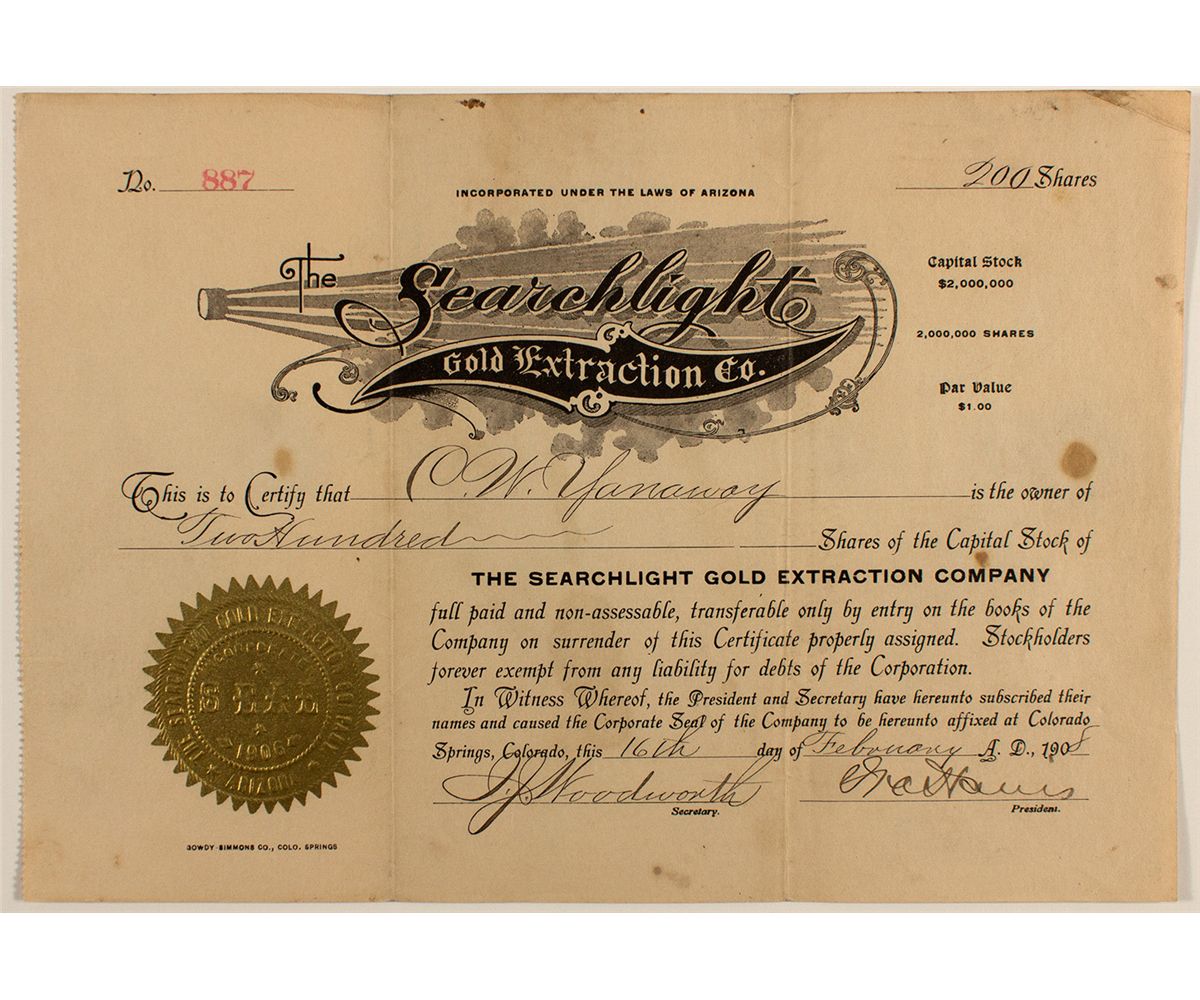 No. 887
200 Shares
INCORPORATED UNDER THE LAWS OF ARIZONA
The Searchlight
Gold Extraction Co.
Capital Stock
$2,000,000
2,000,000 SHARES
Par Value
$1.00
This is to Certify that C. W. Yanaway is the owner of
Two Hundred Shares of the Capital Stock of
THE SEARCHLIGHT GOLD EXTRACTION COMPANY
full paid and non-assessable, transferable only by entry on the books of the
Company on surrender of this Certificate properly assigned. Stockholders
forever exempt from any liability for debts of the Corporation.
In Witness Whereof, the President and Secretary have hereunto subscribed their
names and caused the Corporate Seal of the Company to be hereunto affixed at Colorado
Springs, Colorado, this 16th day of February A. D., 1908
Woodworth
Secretary.
President.
SEARCHLIGHT GOLD EXTRACTION CO.
SEAL
1906
ARIZONA
GOWDY-SIMMONS CO., COLO. SPRINGS